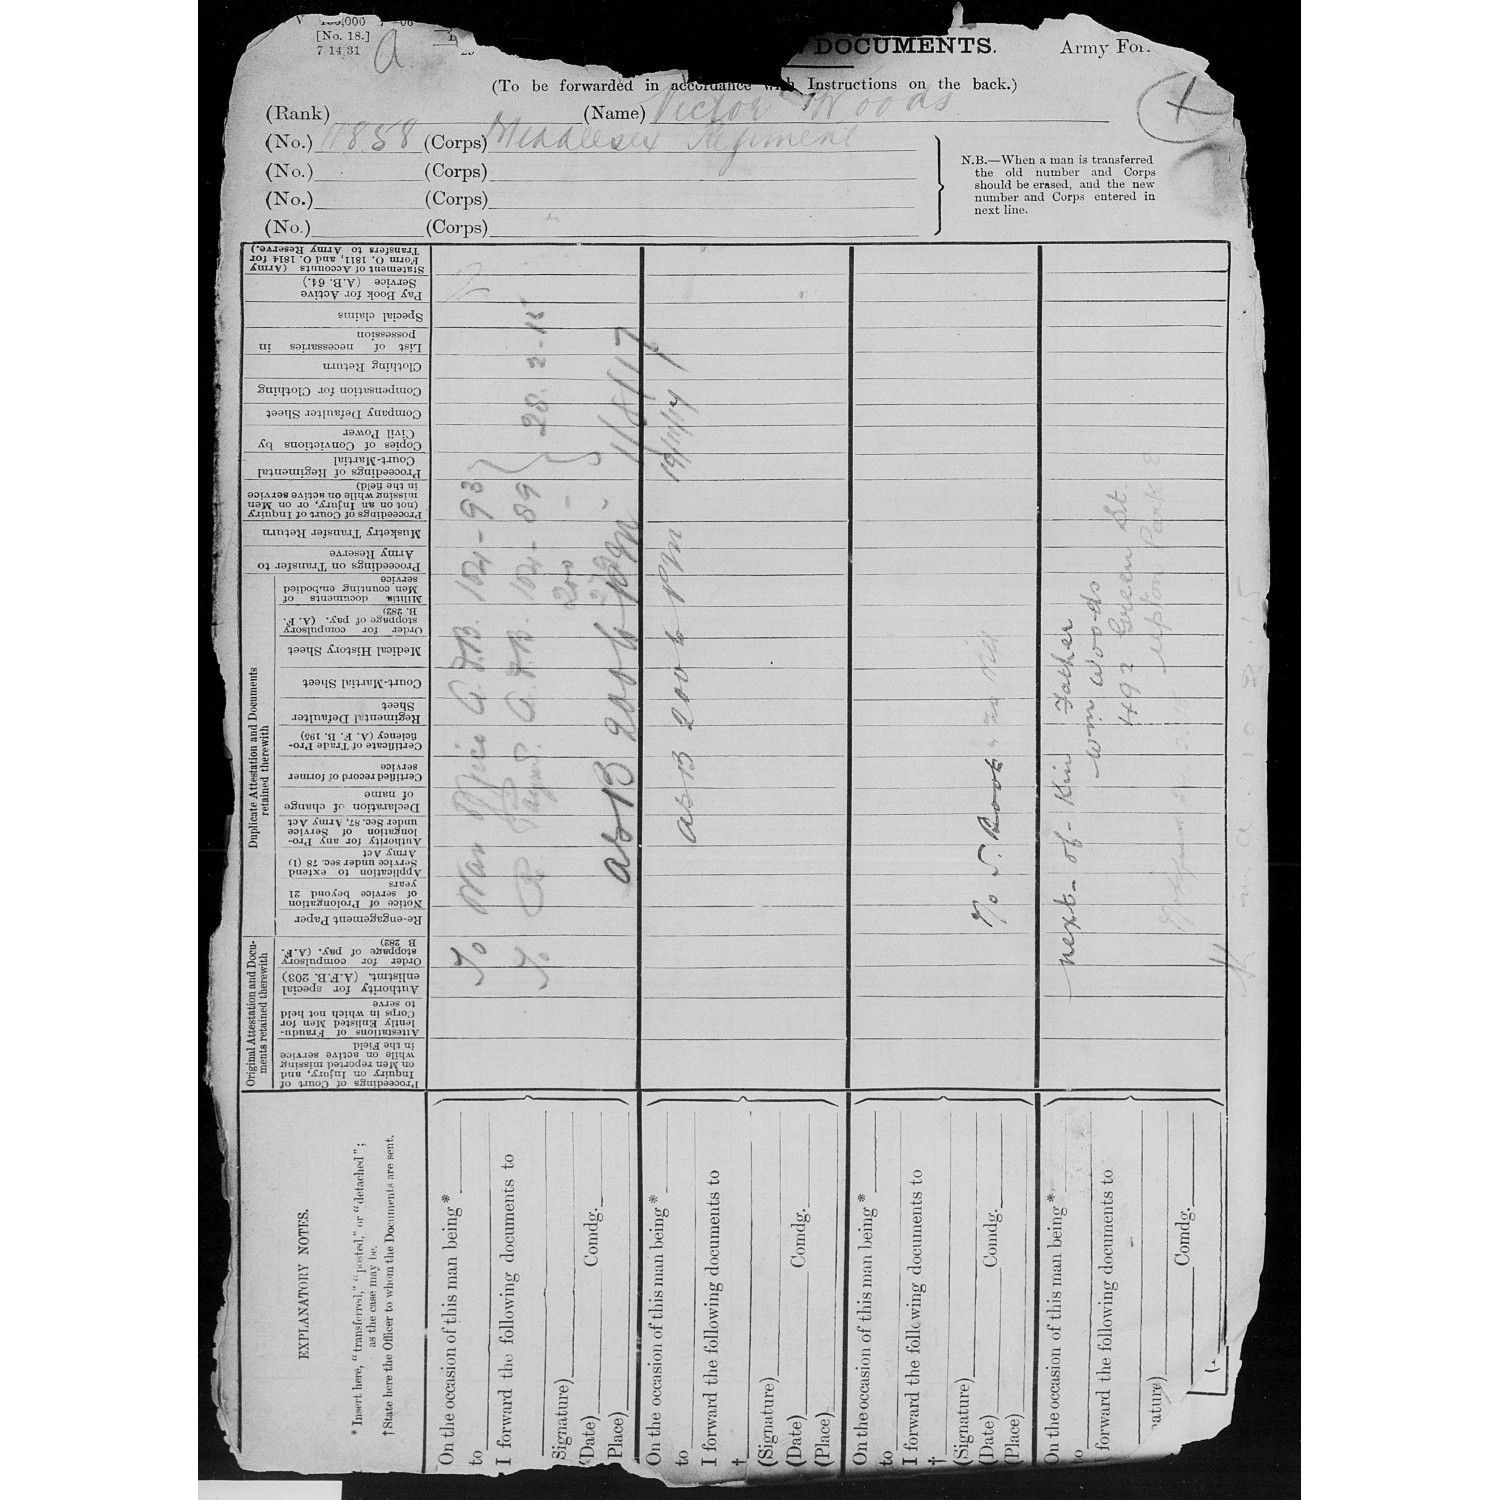 [No. 18.]
7 14 31
a
DOCUMENTS.
Army For
(To be forwarded in accordance with Instructions on the back.)
(Rank) (Name) Victor Woods
(No.) 11858 (Corps) Middlesex Regiment
(No.) (Corps)
(No.) (Corps)
(No.) (Corps)
N.B.—When a man is transferred
the old number and Corps
should be erased, and the new
number and Corps entered in
next line.
Statement of Accounts (Army
Form O. 1811, and O. 1814 for
Transfers to Army Reserve.)
Pay Book for Active
Service (A.B. 64.)
Special claims
List of necessaries in
possession
Clothing Return
Compensation for Clothing
Company Defaulter Sheet
Copies of Convictions by
Civil Power
Proceedings of Regimental
Court-Martial
Proceedings of Court of Inquiry
(not on an Injury, or on Men
missing while on active service
in the field)
Musketry Transfer Return
Proceedings on Transfer to
Army Reserve
Duplicate Attestation and Documents
retained therewith
Militia documents of
Men counting embodied
service
Order for compulsory
stoppage of pay. (A. F.
B. 282)
Medical History Sheet
Court-Martial Sheet
Regimental Defaulter
Sheet
Certificate of Trade Pro-
ficiency (A. F. B. 195)
Certified record of former
service
Declaration of change
of name
Authority for any Pro-
longation of Service
under Sec. 87, Army Act
Application to extend
Service under sec. 78 (1)
Army Act
Notice of Prolongation
of service beyond 21
years
Re-engagement Paper
Original Attestation and Docu-
ments retained therewith
Order for compulsory
stoppage of pay. (A.F.
B 282)
Authority for special
enlistmt. (A.F.B. 203)
Attestations of Fraudu-
lently Enlisted Men for
Corps in which not held
to serve
Proceedings of Court of
Inquiry on Injury, and
on Men reported missing
while on active service
in the Field
To War Office A.F.B. 104-93
To A.F.B. 104-89
28-2-15
200
B 200 b 1/8/17
B 200 b 19/11/14
next-of-Kin Father
Wm Woods
492 Green St.
Upton Park E
EXPLANATORY NOTES.
* Insert here, "transferred," "posted," or "detached";
as the case may be.
†State here the Officer to whom the Documents are sent.
On the occasion of this man being*
to
I forward the following documents to
Signature) Comdg.
(Date)
(Place)
On the occasion of this man being*
to
I forward the following documents to
†
(Signature) Comdg.
(Date)
(Place)
On the occasion of this man being*
to
I forward the following documents to
†
(Signature) Comdg.
(Date)
(Place)
On the occasion of this man being*
to
I forward the following documents to
ature) Comdg.